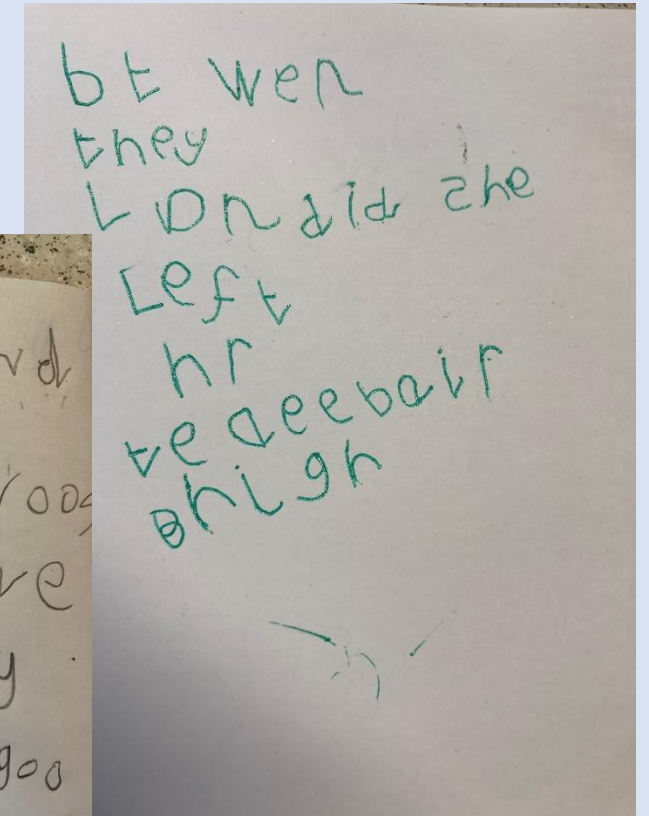 bt wen
they
LDn did she
Left
hr
te deebair
Bhigh
rd
roo
re
y
goo